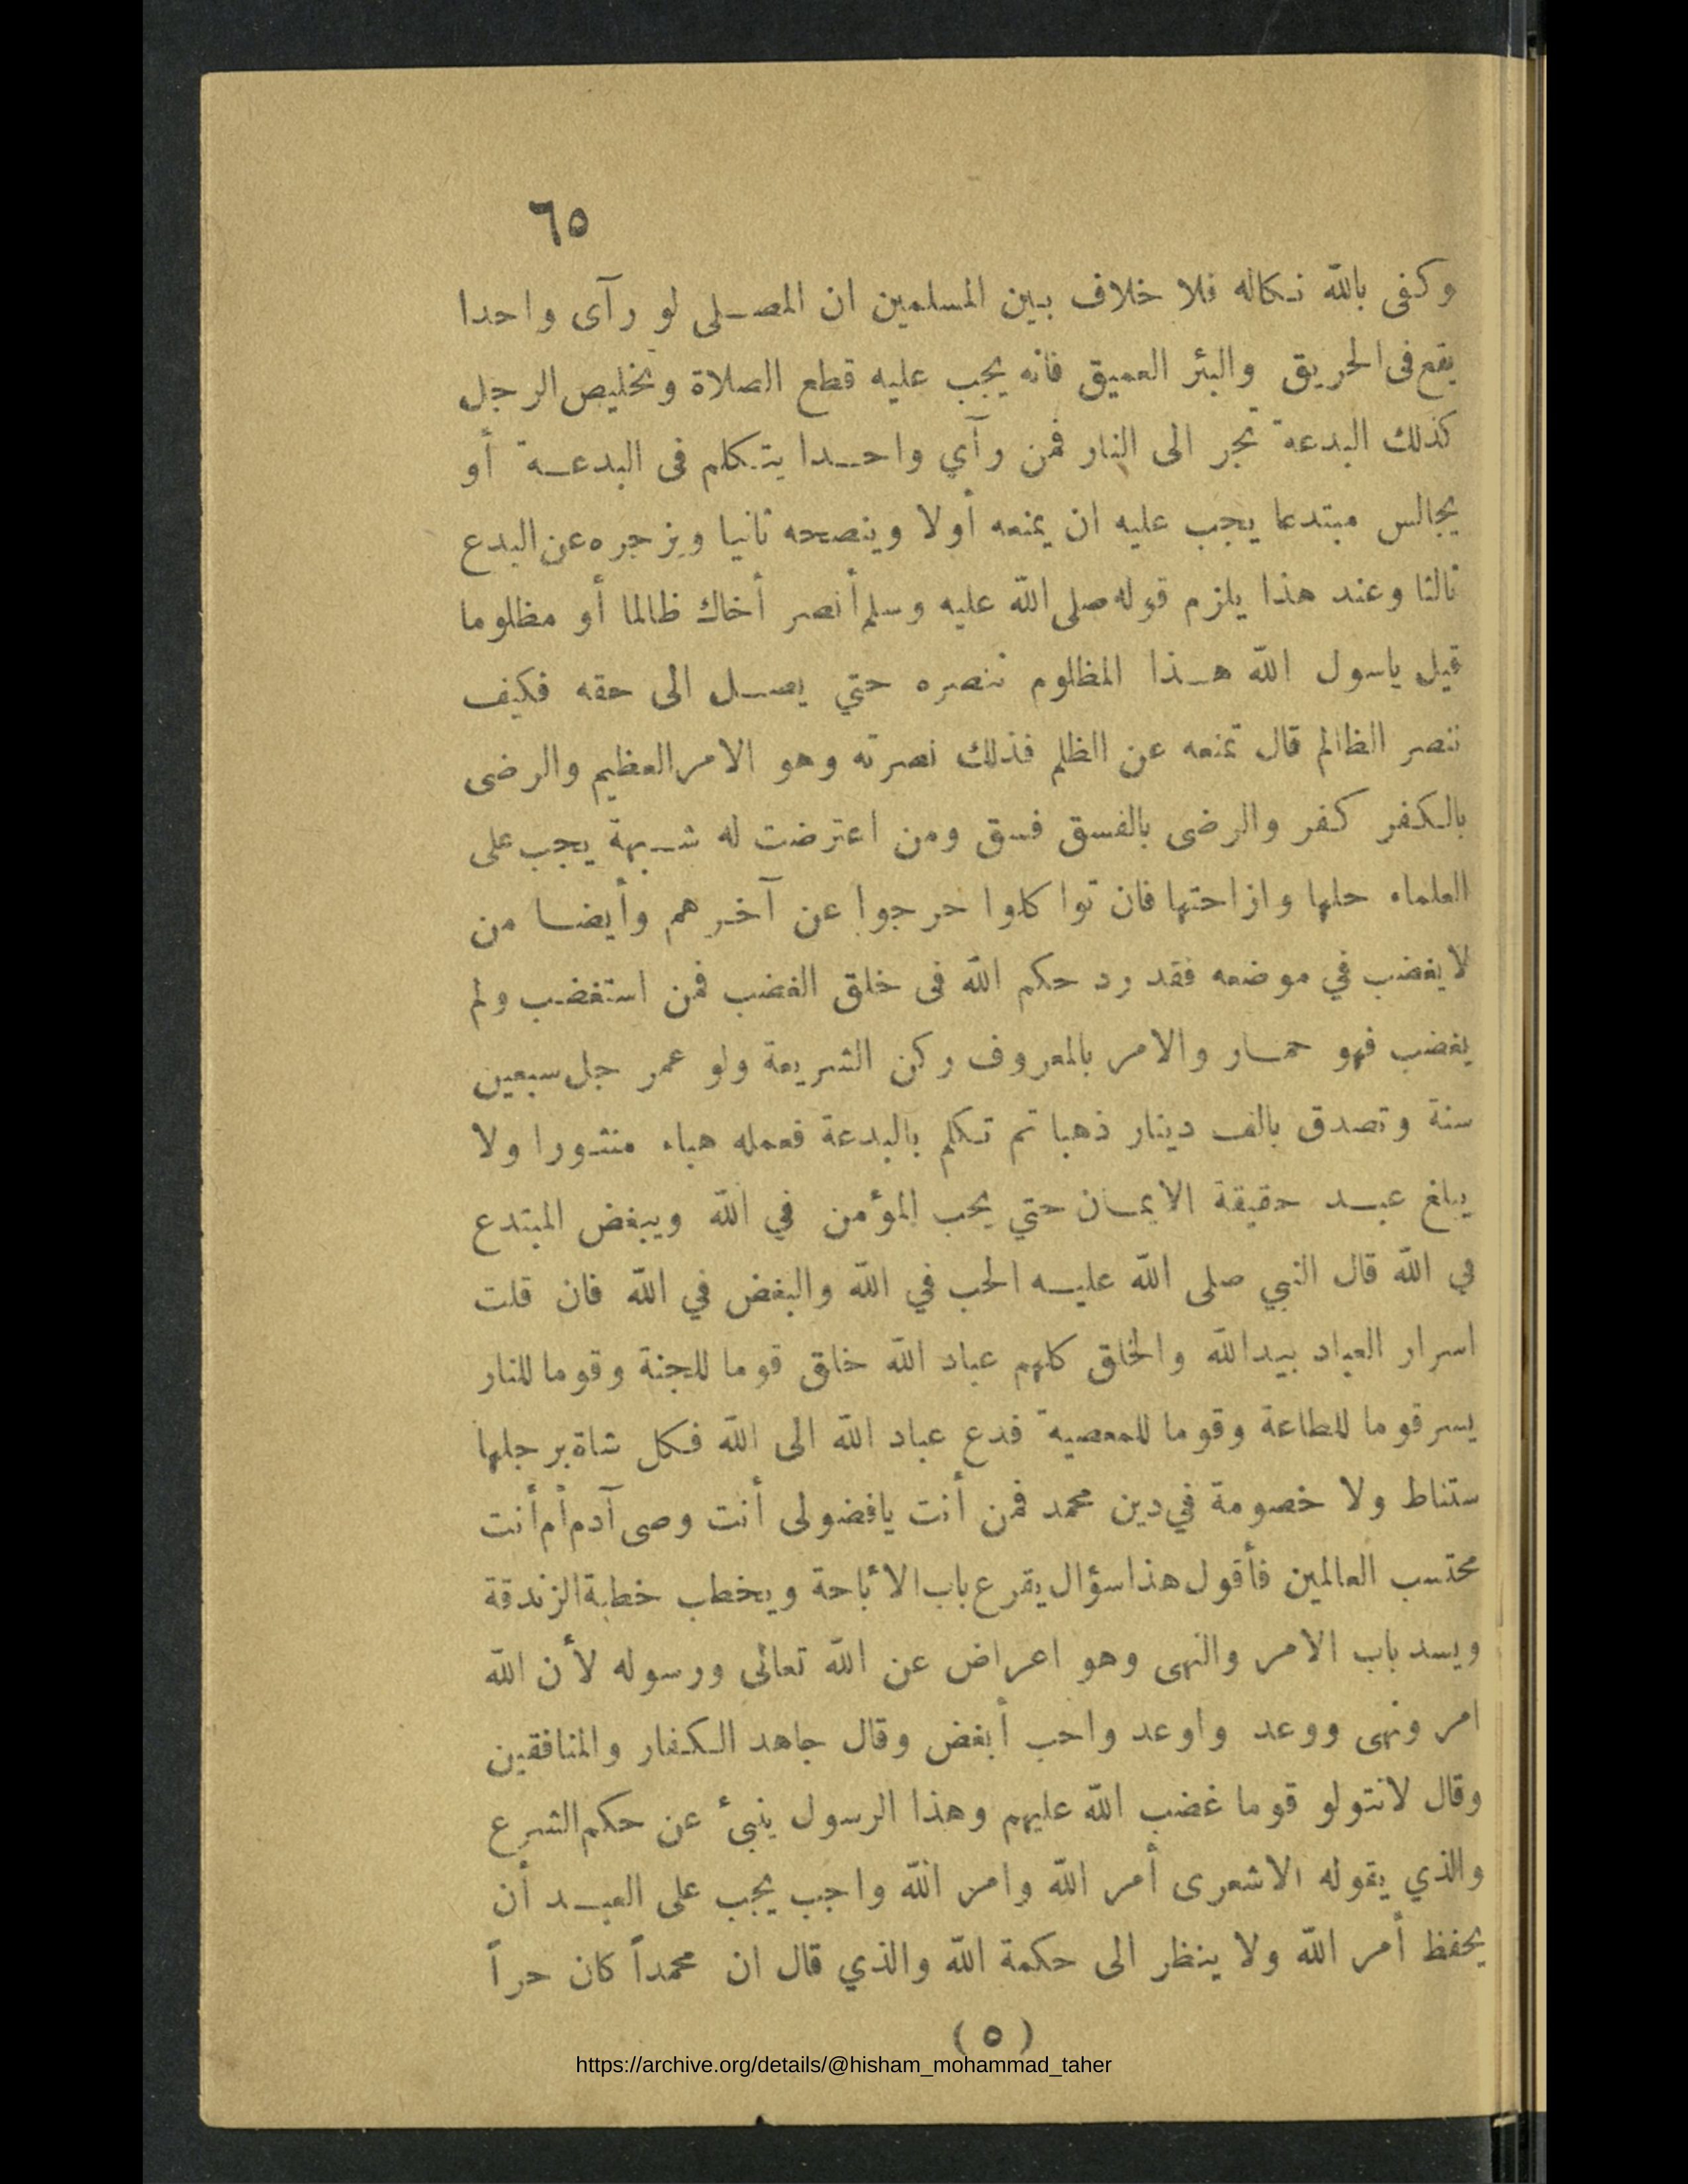 ٦٥
وكفى بالله نكاله فلا خلاف بين المسلمين ان المصلى لو رآى واحدا
يقع فى الحريق والبئر العميق فانه يجب عليه قطع الصلاة وتخليص الرجل
كذلك البدعة تجر الى النار فمن رآي واحدا يتكلم فى البدعة أو
يجالس مبتدعا يجب عليه ان يمنعه أولا وينصحه ثانيا ويزجره عن البدع
ثالثا وعند هذا يلزم قوله صلى الله عليه وسلم أنصر أخاك ظالما أو مظلوما
قيل ياسول الله هذا المظلوم ننصره حتي يصل الى حقه فكيف
ننصر الظالم قال تمنعه عن الظلم فذلك نصرته وهو الامر العظيم والرضى
بالكفر كفر والرضى بالفسق فسق ومن اعترضت له شبهة يجب على
العلماء حلها وازاحتها فان تواكلوا حرجوا عن آخرهم وأيضا من
لا يغضب في موضعه فقد رد حكم الله فى خلق الغضب فمن استغضب ولم
يغضب فهو حمار والامر بالمعروف ركن الشريعة ولو عمر جل سبعين
سنة وتصدق بالف دينار ذهبا ثم تكلم بالبدعة فعمله هباء منثورا ولا
يبلغ عبد حقيقة الايمان حتي يحب المؤمن في الله ويبغض المبتدع
في الله قال النبي صلى الله عليه الحب في الله والبغض في الله فان قلت
اسرار العباد بيد الله والخلق كلهم عباد الله خلق قوما للجنة وقوما للنار
يسر قوما للطاعة وقوما للمعصية فدع عباد الله الى الله فكل شاة برجلها
ستناط ولا خصومة في دين محمد فمن أنت يافضولى أنت وصى آدم أم أنت
محتسب العالمين فأقول هذا سؤال يقرع باب الأباحة ويخطب خطبة الزندقة
ويسد باب الامر والنهى وهو اعراض عن الله تعالى ورسوله لأن الله
امر ونهى ووعد واوعد واحب أبغض وقال جاهد الكفار والمنافقين
وقال لاتتولو قوما غضب الله عليهم وهذا الرسول ينبئ عن حكم الشرع
والذي يقوله الاشعرى أمر الله وامر الله واجب يجب على العبد أن
يحفظ أمر الله ولا ينظر الى حكمة الله والذي قال ان محمداً كان حراً
(٥)
https://archive.org/details/@hisham_mohammad_taher